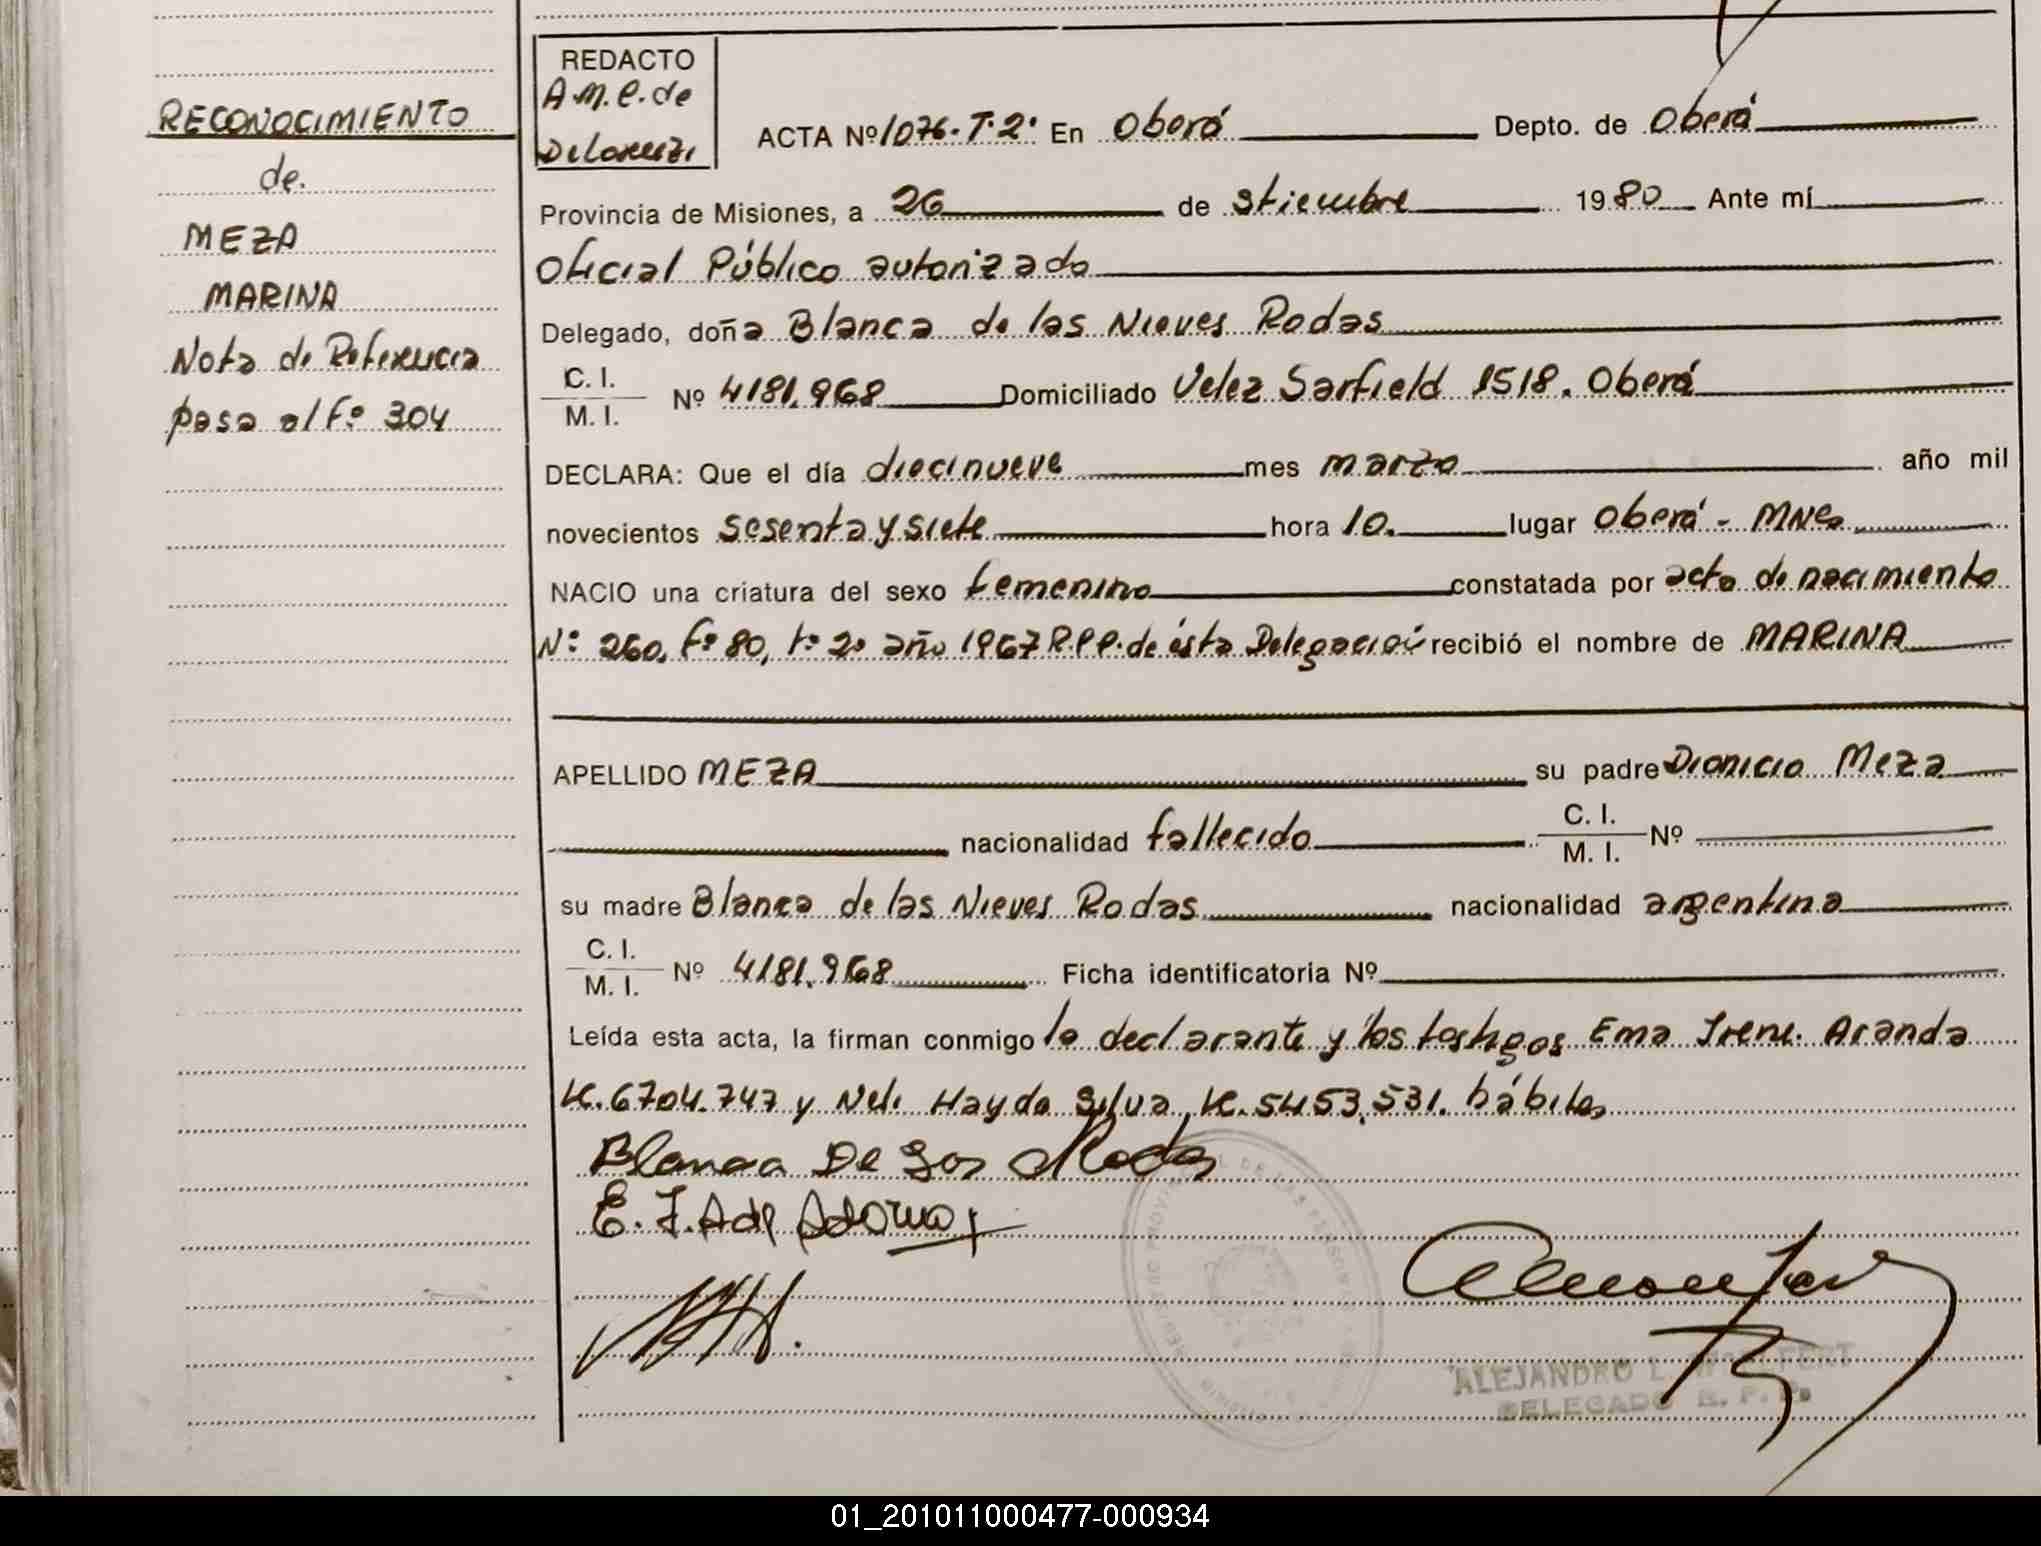 RECONOCIMIENTO
de.
MEZA
MARINA
Nota de Referencia
pasa al Fº 304
REDACTO
A.M.C. de
DeLorenzi
ACTA Nº 1076. T. 2º En Oberá Depto. de Oberá
Provincia de Misiones, a 26 de stiembre 1980 Ante mí
Oficial Público autorizado
Delegado, doña Blanca de las Nieves Rodas
C. I.
M. I. Nº 4181.968 Domiciliado Velez Sarfield 1518. Oberá
DECLARA: Que el día diecinueve mes marzo año mil
novecientos sesenta y siete hora 10. lugar Oberá - MNes
NACIO una criatura del sexo femenino constatada por acta de nacimiento
Nº 260, Fº 80, tº 2º año 1967 R.P.P. de ésta Delegación recibió el nombre de MARINA
APELLIDO MEZA su padre Dionicio Meza
nacionalidad fallecido C. I.
M. I. Nº
su madre Blanca de las Nieves Rodas nacionalidad argentina
C. I.
M. I. Nº 4181.968 Ficha identificatoria Nº
Leída esta acta, la firman conmigo la declarante y los testigos Ema Irene. Aranda
LC. 6704.747 y Neli Hayde Silva, LC. 5453.531. hábiles
Blanca De Las Rodas
ALEJANDRO L.
DELEGADO R. P. P.
01_201011000477-000934